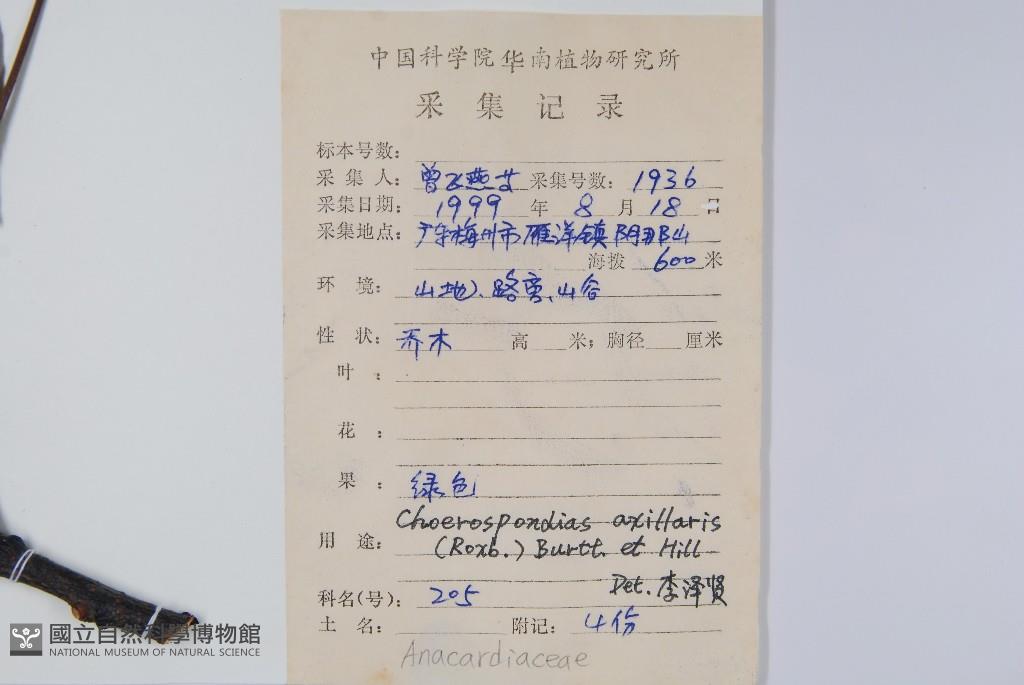 中国科学院华南植物研究所
采集记录
标本号数:
采集人: 曾飞燕 采集号数: 1936
采集日期: 1999 年 8 月 18 日
采集地点: 广东梅州市雁洋镇阴那山
海拨 600 米
环境: 山地、路旁、山谷
性状: 乔木 高 米; 胸径 厘米
叶:
花:
果: 绿色
Choerospondias axillaris
用途: (Roxb.) Burtt. et Hill
Det. 李泽贤
科名(号): 205
土名: 附记: 4份
Anacardiaceae
國立自然科學博物館
NATIONAL MUSEUM OF NATURAL SCIENCE